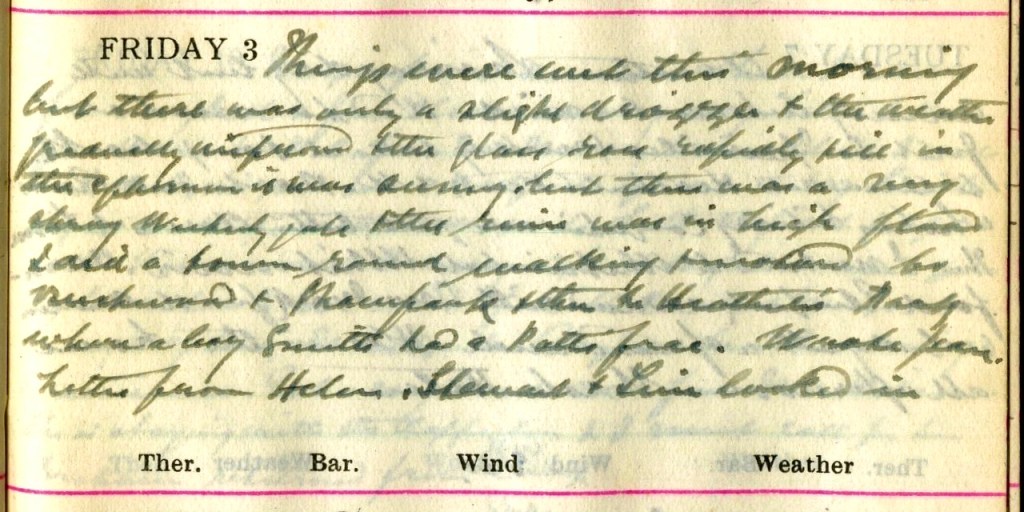 FRIDAY 3 Things were wet this morning
but there was only a slight drizzle & the weather
gradually improved & the glass rose rapidly till in
the afternoon it was sunny. but there was a very
strong Westerly gale & the river was in high flood
I did a town round walking & motored to
& then to Heather's
where a boy Smith had a Potts frac. Wrote Jean.
Letter from Helen. Stewart & looked in
Ther. Bar. Wind Weather